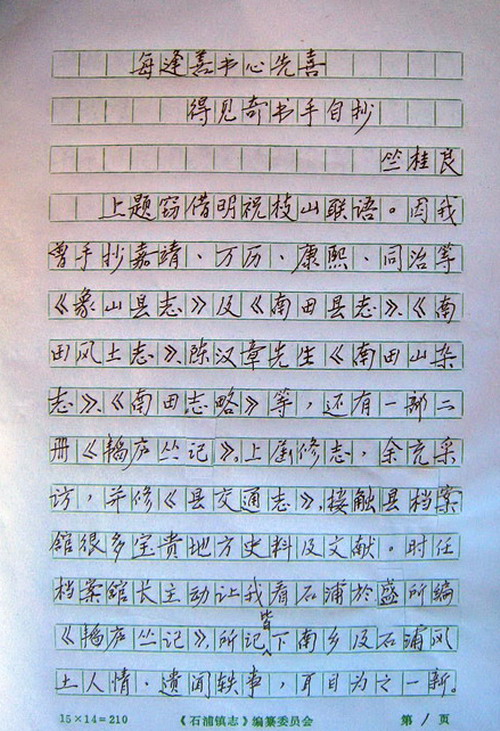 每逢善书心先喜
得见奇书手自抄
竺桂良
上题窃借明祝枝山联语。因我
曾手抄嘉靖、万历、康熙、同治等
《象山县志》及《南田县志》、《南
田风土志》、陈汉章先生《南田山杂
志》、《南田志略》等，还有一部二
册《韬庐丛记》。上届修志，余充采
访，并修《县交通志》，接触县档案
馆很多宝贵地方史料及文献。时任
档案馆长主动让我看石浦於盛所编
《韬庐丛记》，所记皆下南乡及石浦风
土人情、遗闻轶事，耳目为之一新。
15×14=210 《石浦镇志》编纂委员会 第1页